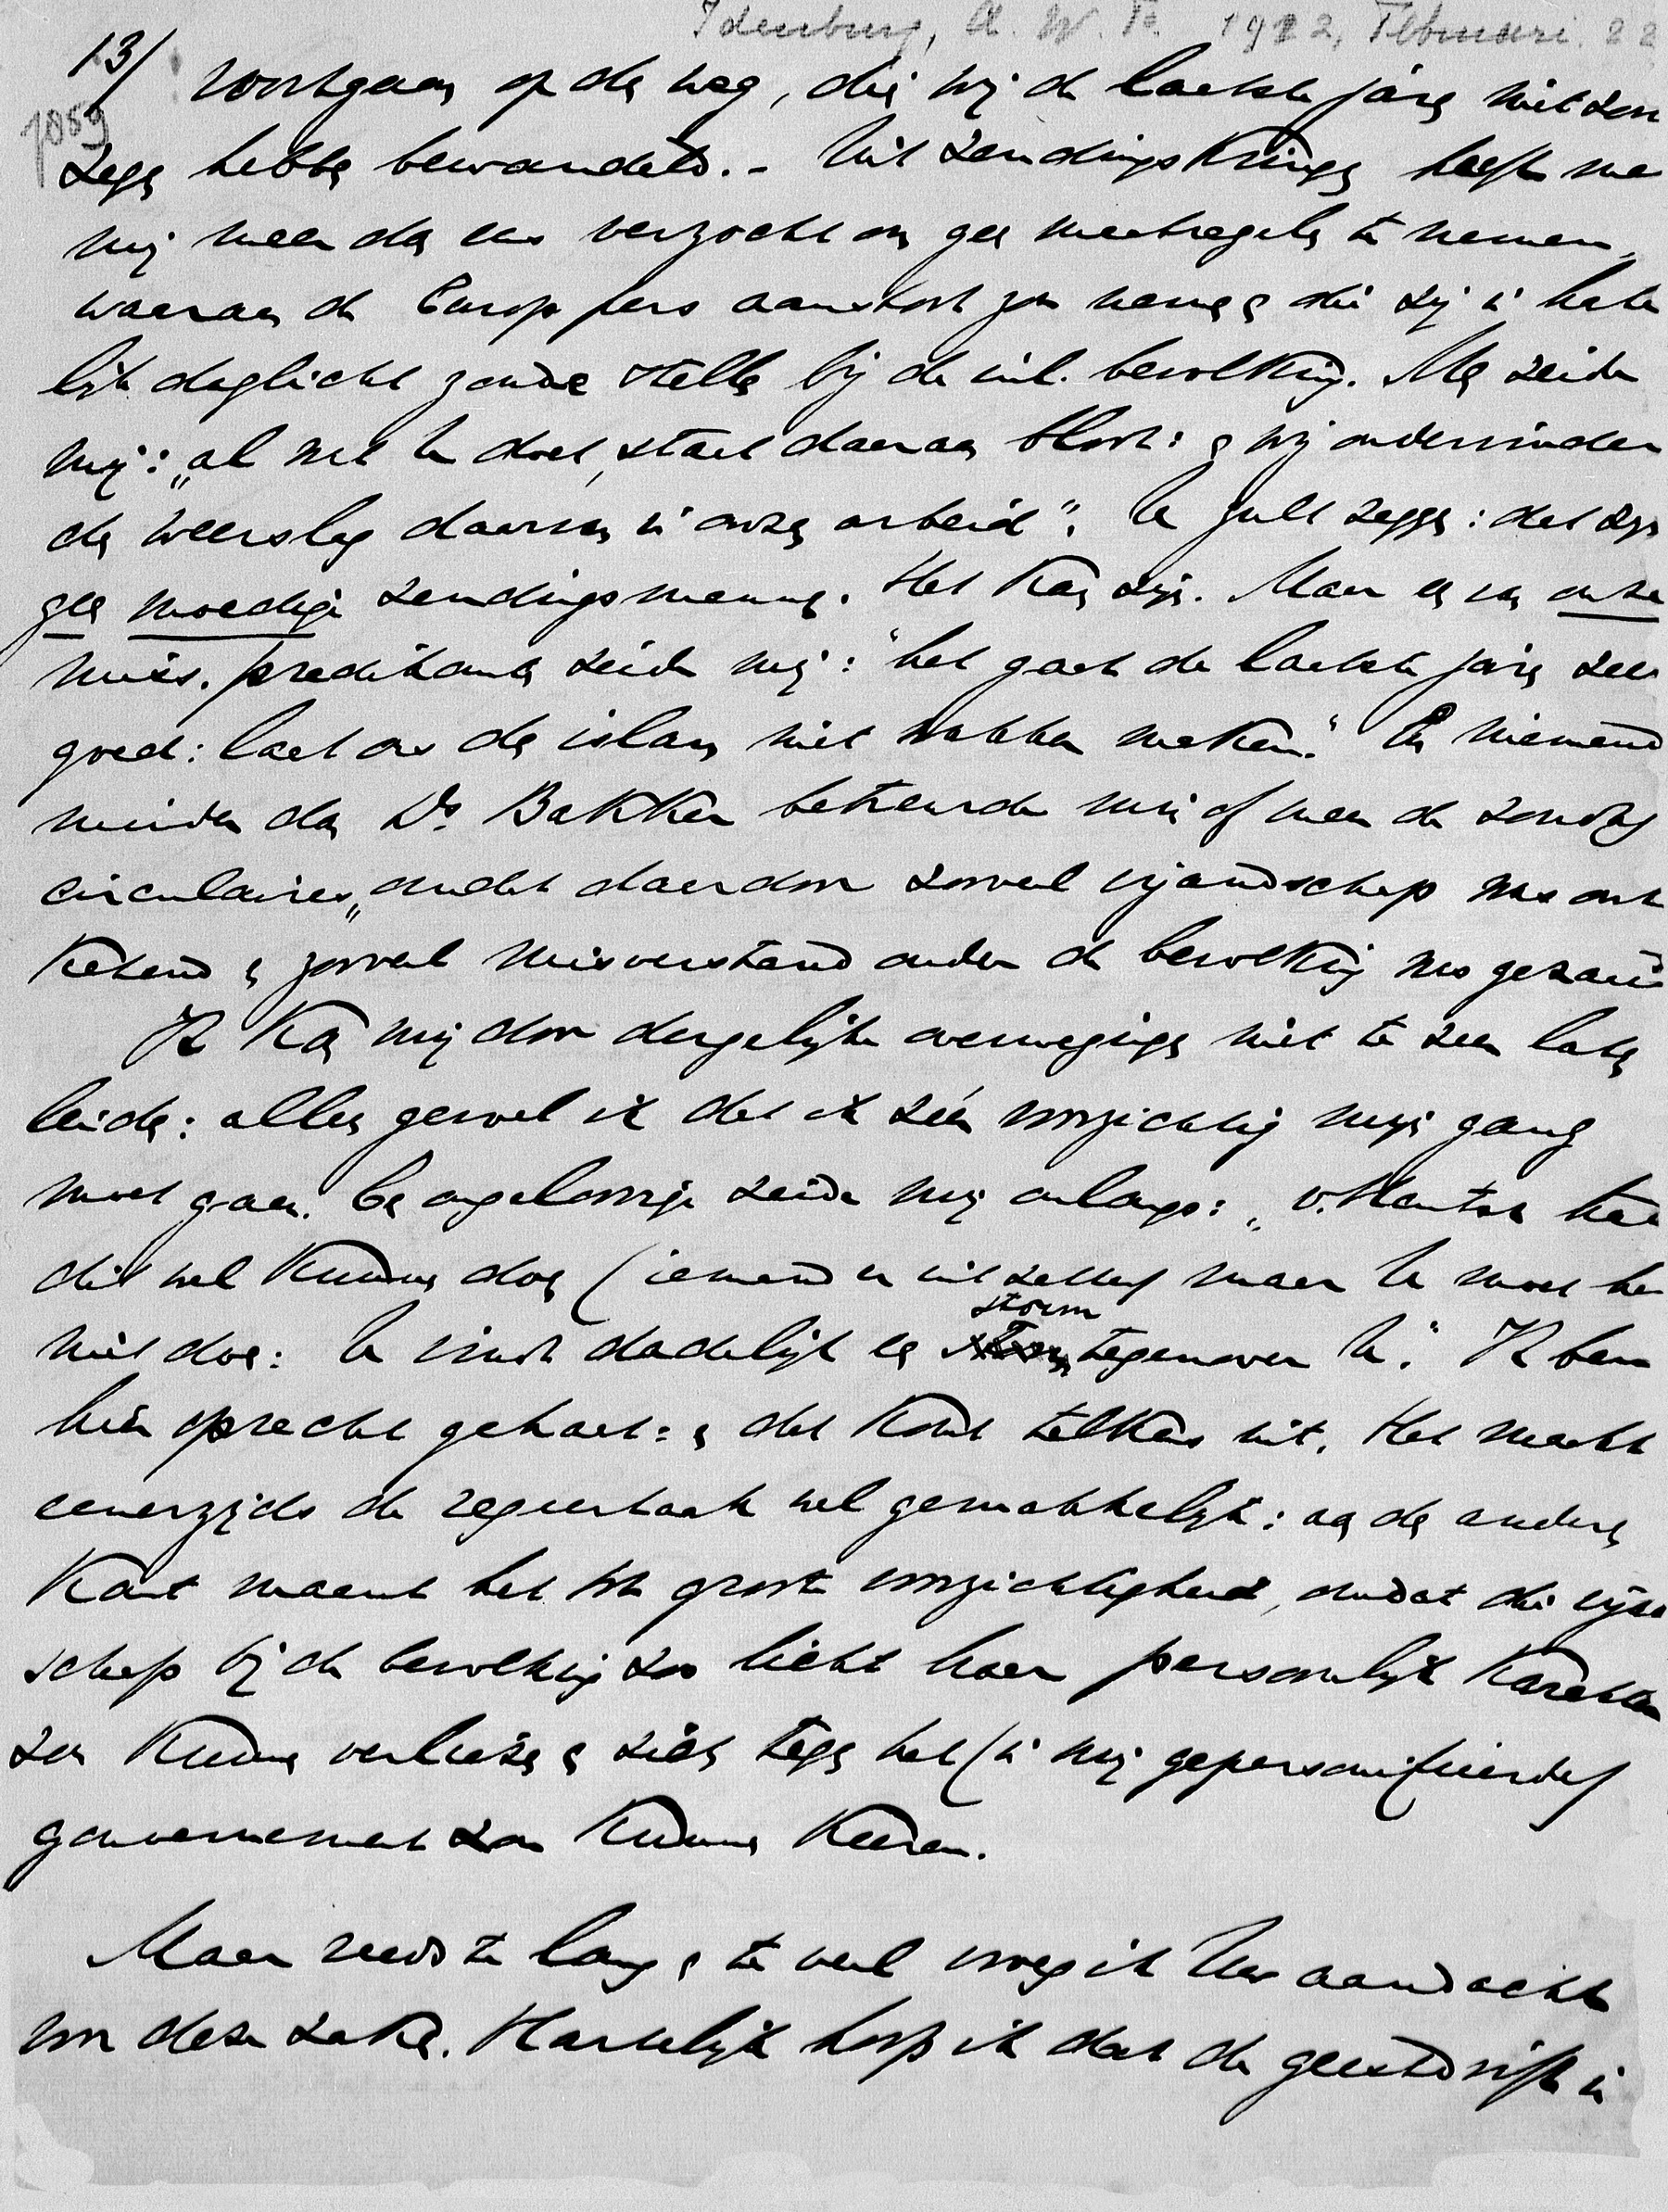 Idenburg, A. W. F. 1912, Februari. 22
13/ voortgaan op den weg, dien wij de laatste jaren niet zon
7059
zegen hebben bewandeld. - Uit Zendingskringen heeft me
mij meer dan eens verzocht om geen maatregelen te nemen,
waaraan de Europ pers aanstoot zou nemen en die zij in hate
lijk daglicht zoude stellen bij de inl. bevolking. Men zeide
mij: „al wat U doet, staat daaraan bloot: en wij ondervinden
den weerslag daarvan in onzen arbeid". U zult zeggen: dat zijn
geen moedige zendingsmannen. Het kan zijn. Maar een van onze
miss. predikanten zeide mij: "het gaat de laatste jaren zeer
goed: laat ons den islam niet wakker maken." En niemand
minder dan Ds. Bakker betreurde min of meer de zondag
circulaires, „omdat daardoor zooveel vijandschap was ont
ketend en zooveel misverstand onder de bevolking was gezaaid
Ik kan mij door dergelijke overwegingen niet te zeer laten
leiden: alleen gevoel ik dat ik zéér voorzichtig mijn gang
moet gaan. Een ongeloovige zeide mij onlangs: „v. Heutsz kon
dit wel kunnen doen (iemand er uit zetten) maar U moet het
niet doen: U vindt dadelijk een storm tegenover U". Ik ben
hier oprecht gehaat: en dat komt telkens uit. Het maakt
eenerzijds de regeertaak wel gemakkelijk: aan den anderen
kant maant het tot groote voorzichtigheid, omdat die vijan
schap bij de bevolking zoo licht haar persoonlijk karakter
zou kunnen verliezen en zich tegen het (in mij gepersonifieerde)
gouvernement zou kunnen keeren.
Maar reeds te lang en te veel vroeg ik Uw aandacht
voor deze zaken. Hartelijk hoop ik dat de geestdrift in